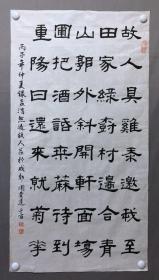 故人具雞黍邀我至
田家綠樹村邊合青
山郭外斜開軒面場
圃把酒話桑麻待到
重陽日還來就菊華
丙子年仲夏錄孟浩然過故人莊於成都 周